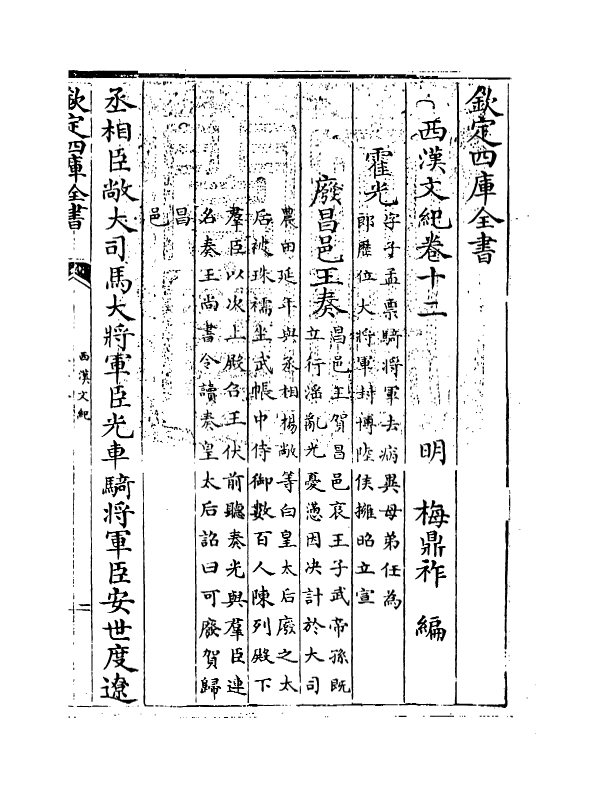 欽定四庫全書
西漢文紀卷十二
明　梅鼎祚　編
霍光
字子孟票騎將軍去病異母弟任為
郎歷位大將軍封博陸侯擁昭立宣
廢昌邑王奏
昌邑王賀昌邑哀王子武帝孫既
立行淫亂光憂懣因决計於大司
農田延年與丞相楊敞等白皇太后廢之太
后被珠襦坐武帳中侍御數百人陳列殿下
羣臣以次上殿召王伏前聽奏光與羣臣連
名奏王尚書令讀奏皇太后詔曰可廢賀歸
昌
邑
丞相臣敞大司馬大將軍臣光車騎將軍臣安世度遼
欽定四庫全書
西漢文紀